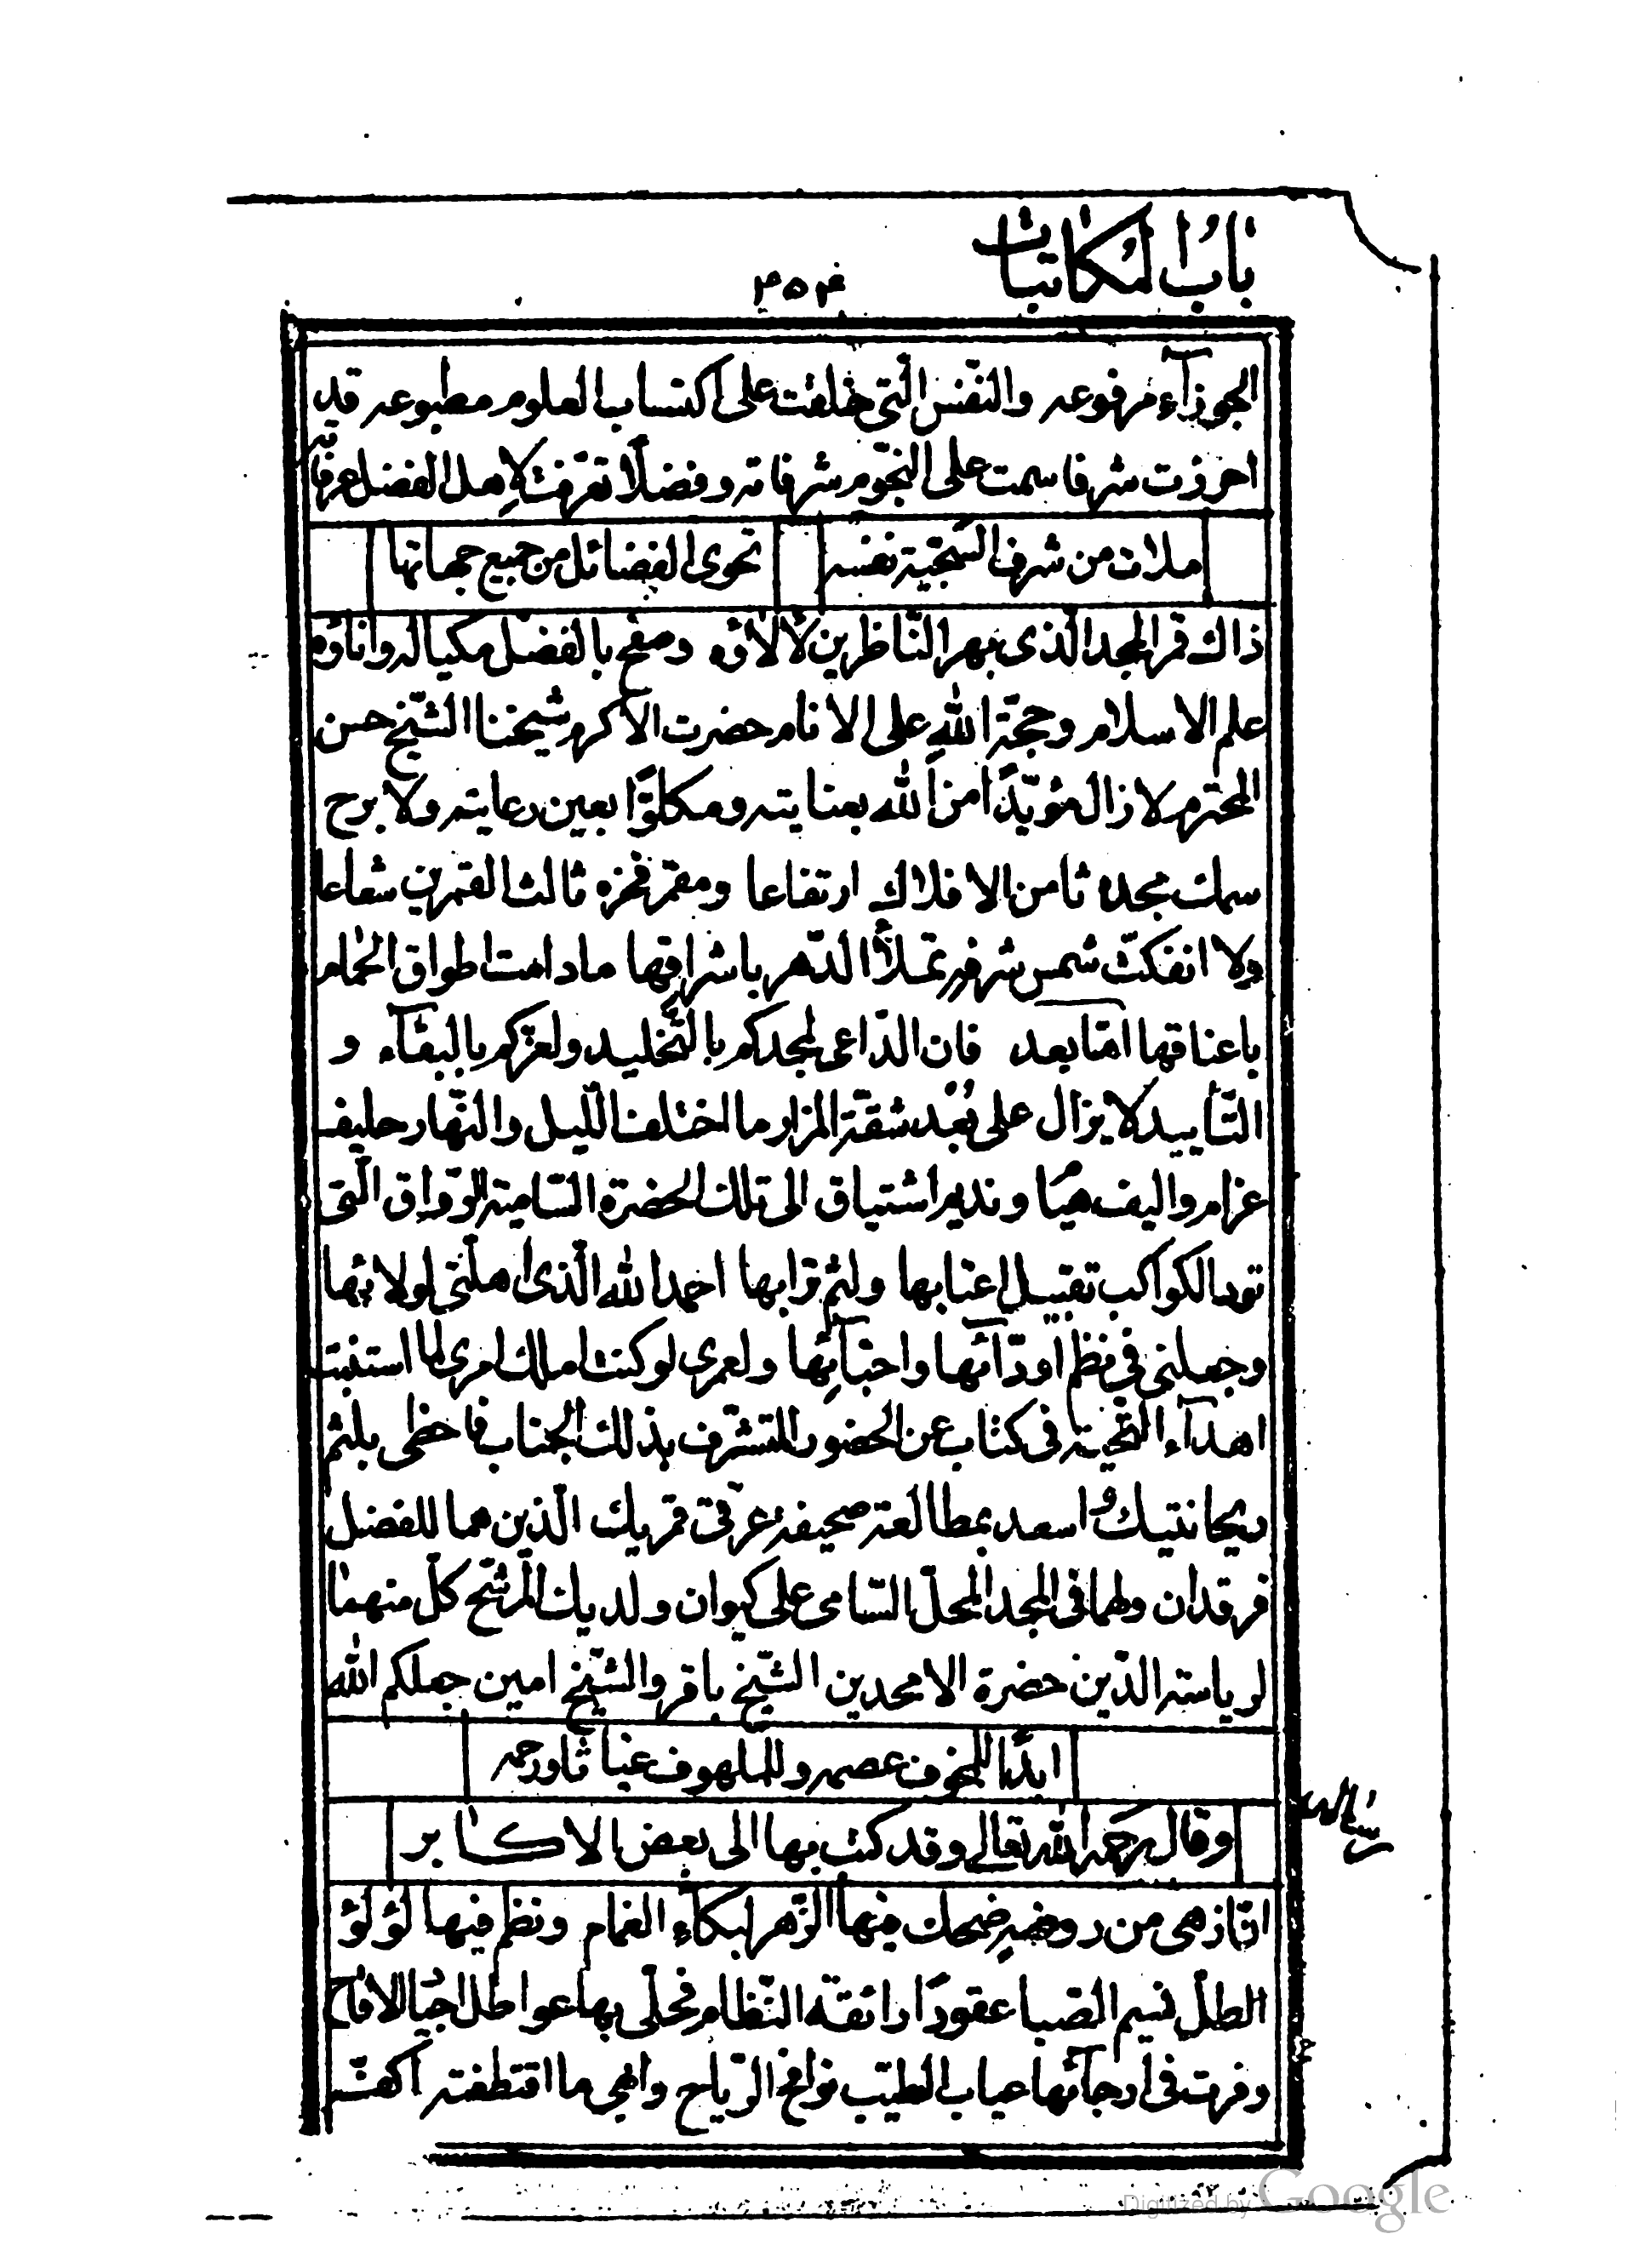 باب المكاتبات
٣٥٤
الجوزآء مرفوعه والنّفس الّتى خلقت على اكتساب العلوم مطبوعه قد
احرزت شرفا سمت على النّجوم شرفاته وفضلًا تعرّفت لاهل الفضل عرفاته
ملات من شرف السّجيّة نفسه تحوى الفضائل من جميع جهاتها
ذاك قمر المجد الّذى بهر النّاظرين لألاؤه وطفح بالفضل مكياله واناؤه
علم الاسلام وحجّة الله على الانام حضرت الاكرم شيخنا الشّيخ حسن
المحترم لا زال مؤيّدًا من الله بعنايته ومكلوًّا بعين رعايته ولا برح
سماك مجده ثامن الافلاك ارتفاعا ومقمر فخره ثالث القمرين شعاعا
ولا انفكّت شمس شرفه تملأ الدّهر باشراقها ما دامت اطواق الحمام
باعناقها امّا بعد فان الدّاعى لمجدكم بالتّخليد ولعزّكم بالبقآء و
التّأييد لا يزال على بُعْد شقّة المزار ما اختلف اللّيل والنّهار حليف
غرام واليف هيُام ونديم اشتياق الى تلك الحضرة السّامية الرّواق الّتى
تود الكواكب تقبيل اعتابها ولثم ترابها احمد الله الّذى اهلّنى لولائها
وجعلنى فى نظم اودّآئها واحبّآئها ولعمرى لو كنت املك امرى لما استنبت
اهدآء التّحيّة فى كتاب عن الحضور للتشرّف بذلك الجناب فاحظى بلثم
ريحانتيك واسعد بمطالعة صحيفة غرّتى قمريك الّذين هما للفضل
فرقدان ولهما فى المجد المحلّ السّامى على كيوان ولديك المرشّح كلّ منهما
لرياسة الدّين حضرة الامجدين الشّيخ باقر والشّيخ امين جعلكم الله
ابدًا للمخوف عصمه وللملهوف غياثا ورحمه
وقال رحمه الله تعالى وقد كتب بها الى بعض الاكابر
رساله
انّ ازهى من روضه ضحك فيها الزّهر لبكآء الغمام ونظم فيها لؤلؤ
الطلّ نسيم الصّبا عقودًا رائقة النّظام فحلّى بها عواطل اجياد الاقاح
وفرت فى ارجآئها عياب الطيّب نوافح الرّياح وابهى ما اقتطفته اكفّ